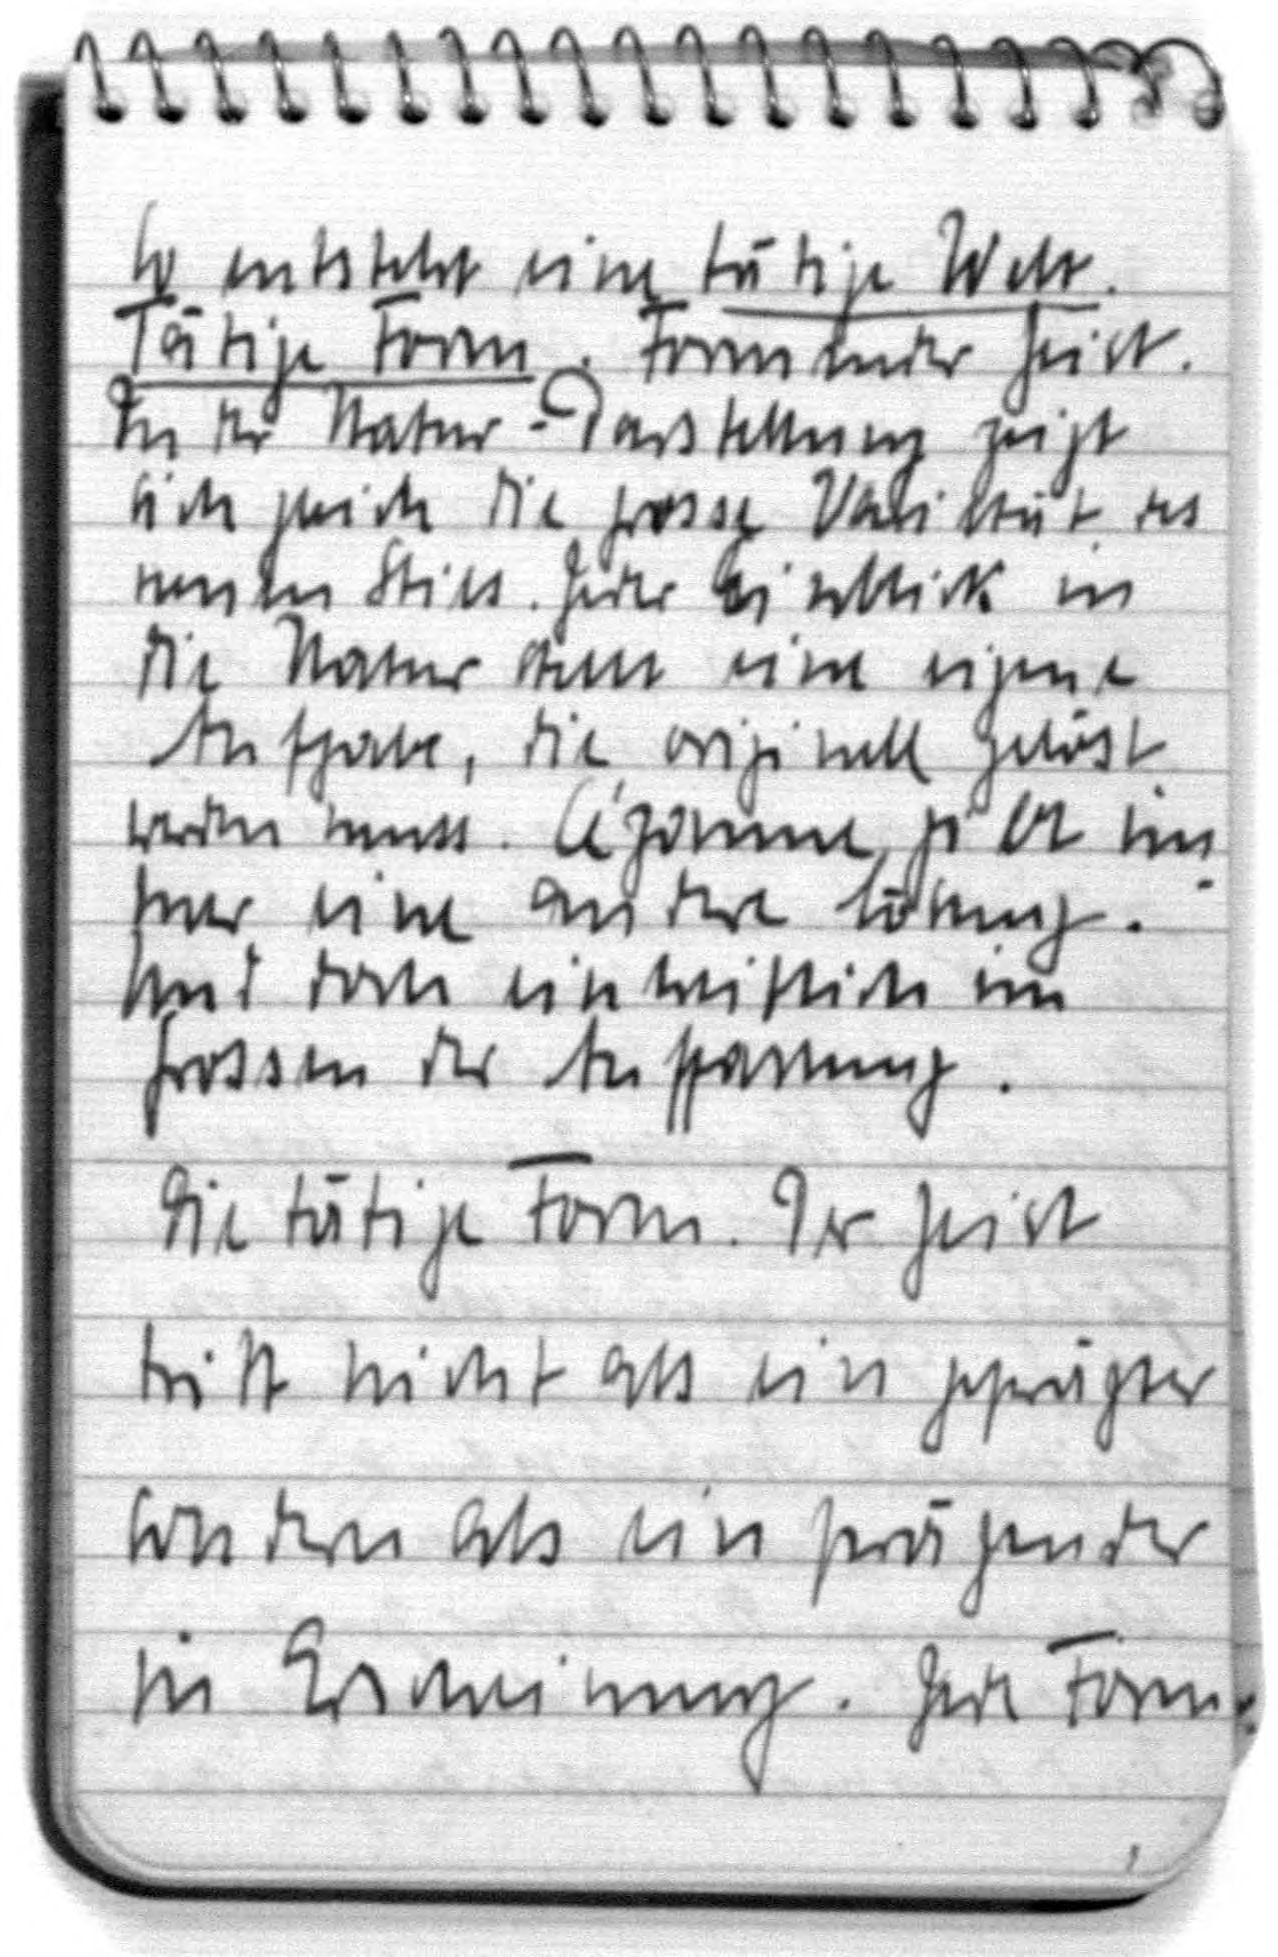 So entsteht eine tätige Welt.
Tätige Form. Formender Geist.
In der Natur-Darstellung zeigt
sich gleich die grosse Variität des
neuen Stils. Jeder Einblick in
die Natur stellt eine eigene
Aufgabe, die originell gelöst
werden muss. Cézanne gibt im-
mer eine andere Lösung.
Und doch einheitlich im
Grossen der Auffassung.
Die tätige Form. Der Geist
tritt nicht als ein geprägter
sondern als ein prägender
in Erscheinung. Jede Form